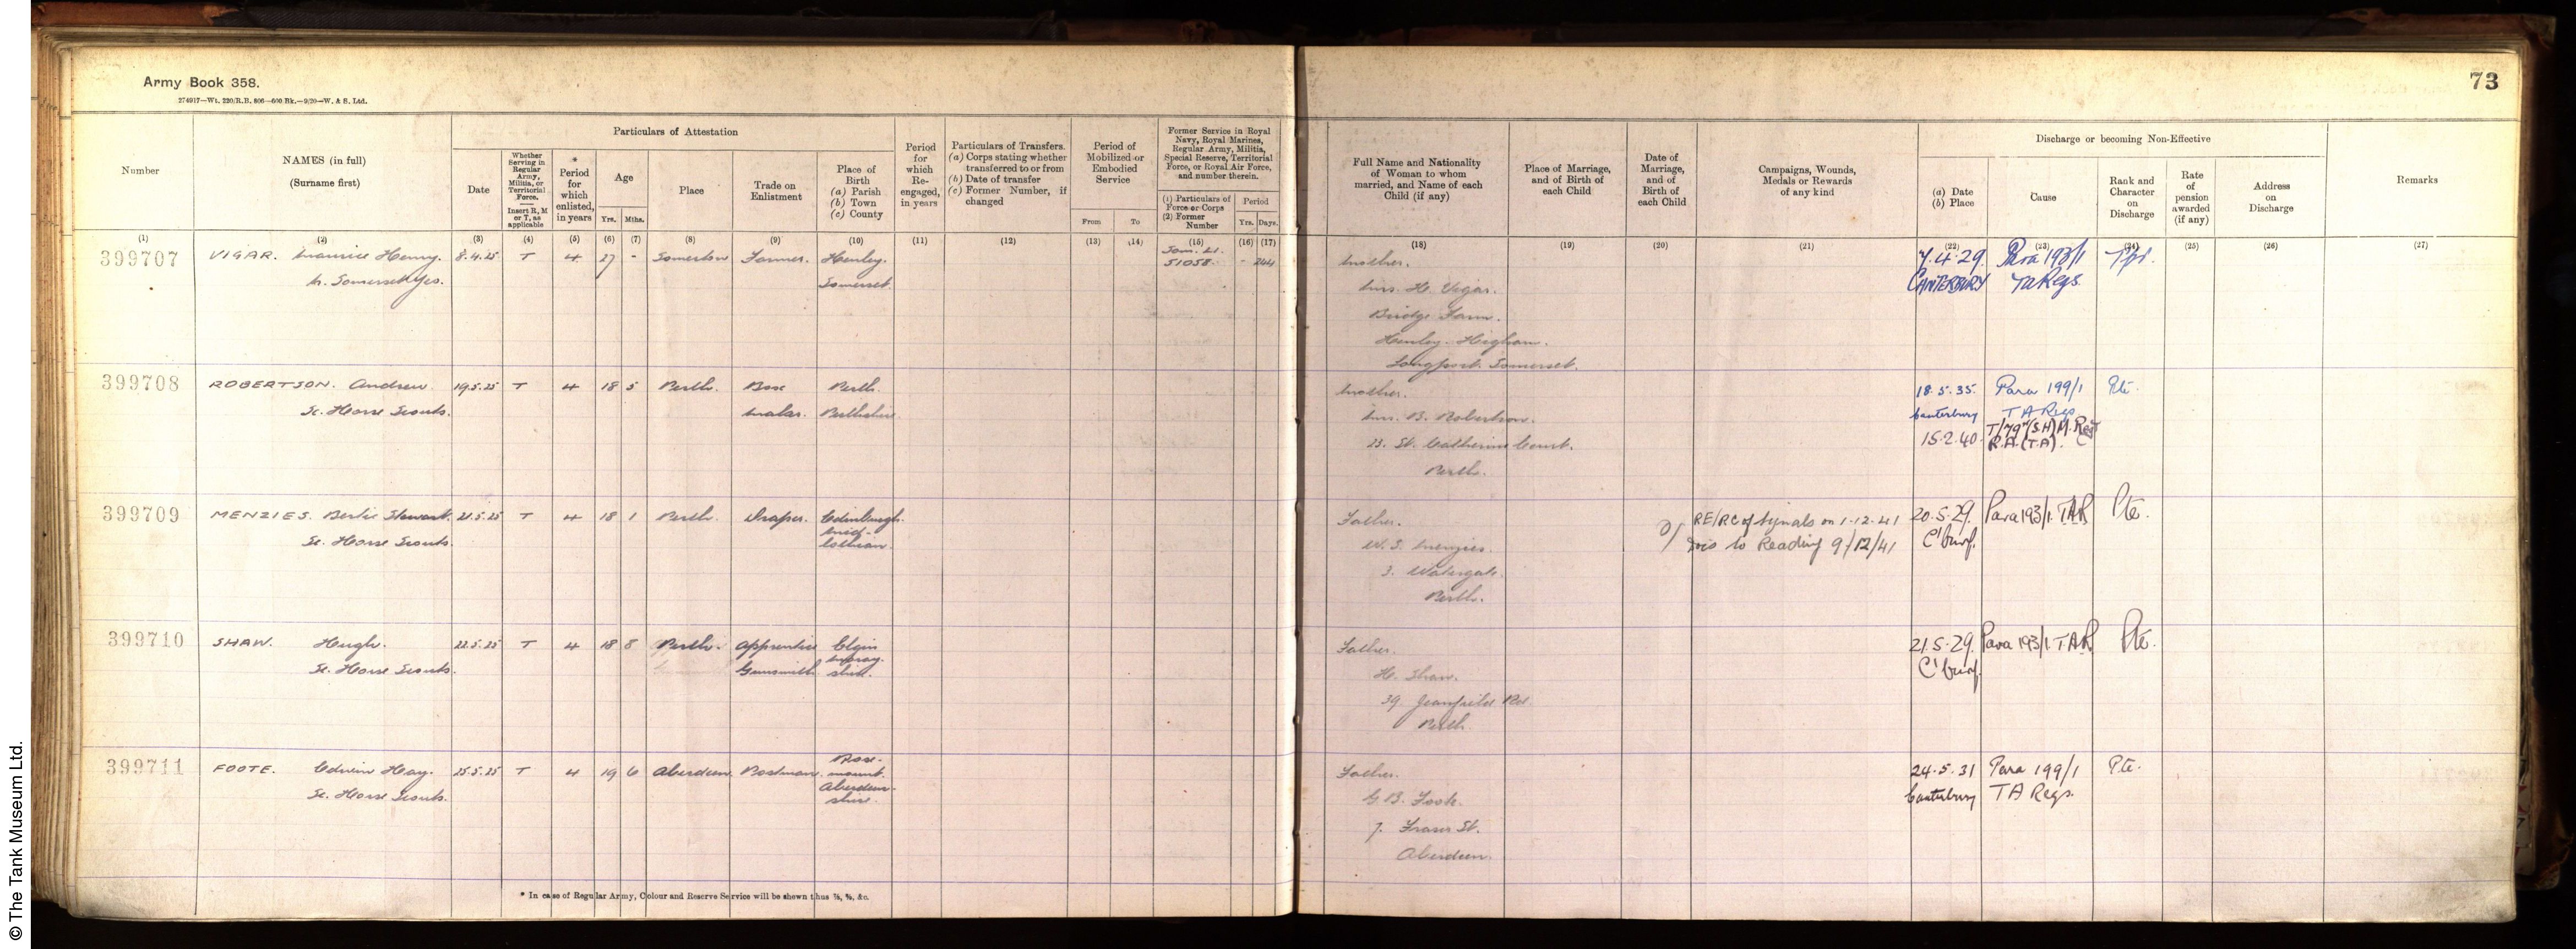 Army Book 358.
274917—Wt. 220/R.B. 806—600 Bk.—9/20—W. & S. Ltd.
73
Number
NAMES (in full)
(Surname first)
Particulars of Attestation
Date
Whether Serving in Regular Army, Militia, or Territorial Force.
Insert R, M or T, as applicable
* Period for which enlisted, in years
Age
Yrs. Mths.
Place
Trade on Enlistment
Place of Birth
(a) Parish
(b) Town
(c) County
Period for which Re-engaged, in years
Particulars of Transfers.
(a) Corps stating whether transferred to or from
(b) Date of transfer
(c) Former Number, if changed
Period of Mobilized or Embodied Service
From To
Former Service in Royal Navy, Royal Marines, Regular Army, Militia, Special Reserve, Territorial Force, or Royal Air Force, and number therein.
(1) Particulars of Force or Corps
(2) Former Number
Period
Yrs. Days.
Full Name and Nationality of Woman to whom married, and Name of each Child (if any)
Place of Marriage, and of Birth of each Child
Date of Marriage, and of Birth of each Child
Campaigns, Wounds, Medals or Rewards of any kind
Discharge or becoming Non-Effective
(a) Date
(b) Place
Cause
Rank and Character on Discharge
Rate of pension awarded (if any)
Address on Discharge
Remarks
(1) (2) (3) (4) (5) (6) (7) (8) (9) (10) (11) (12) (13) (14) (15) (16) (17) (18) (19) (20) (21) (22) (23) (24) (25) (26) (27)
399707 VIGAR. Maurice Henry. 8.4.25 T 4 27 - Somerton Farmer. Henley.
Somerset Yeo. Somerset.
Som. L.I.
51058. - 244
Mother.
Mrs. H. Vigar.
Bridge Farm.
Henley. Higham.
Langport. Somerset.
7.4.29. Para 193/1 Tpr.
CANTERBURY TA Regs.
399708 ROBERTSON. Andrew. 19.5.25 T 4 18 5 Perth. Box Perth.
Sc. Horse Scouts. maker. Perthshire
Mother.
Mrs. B. Robertson.
23. St. Catherine Court.
Perth.
18.5.35. Para 199/1 Pte.
Canterbury TA Regs
15.2.40. T/79th (S.H) M. Regt
R.A. (T.A).
399709 MENZIES. Bertie Stewart. 21.5.25 T 4 18 1 Perth. Draper. Edinburgh.
Sc. Horse Scouts. Mid-
lothian.
Father.
W. S. Menzies.
3. Watergate.
Perth.
RE/RC of Signals on 1-12-41
Docs to Reading 9/12/41
20.5.29. Para 193/1. TAR Pte.
C'bury.
399710 SHAW. Hugh. 22.5.25 T 4 18 8 Perth. Apprentice Elgin
Sc. Horse Scouts. Gunsmith Moray-
shire.
Father.
H. Shaw.
39. Jeanfield Rd.
Perth.
21.5.29. Para 193/1. TAR Pte.
C'bury.
399711 FOOTE. Edwin Hay. 25.5.25 T 4 19 6 Aberdeen. Postman. Rose-
mount.
Sc. Horse Scouts. Aberdeen-
shire.
Father.
G. B. Foote.
7. Fraser St.
Aberdeen.
24.5.31 Para 199/1 Pte.
Canterbury TA Regs.
* In case of Regular Army, Colour and Reserve Service will be shewn thus ⅞, ⅜, &c.
© The Tank Museum Ltd.